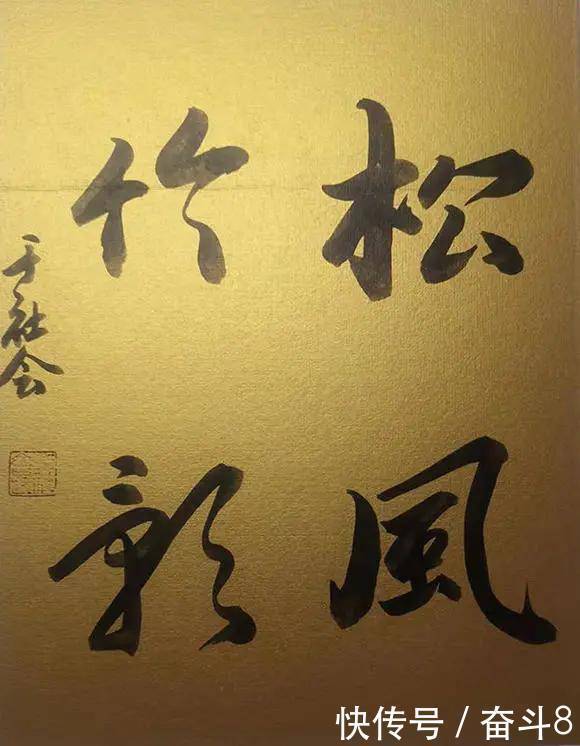 松風
竹影
于社会
快传号 / 奋斗8